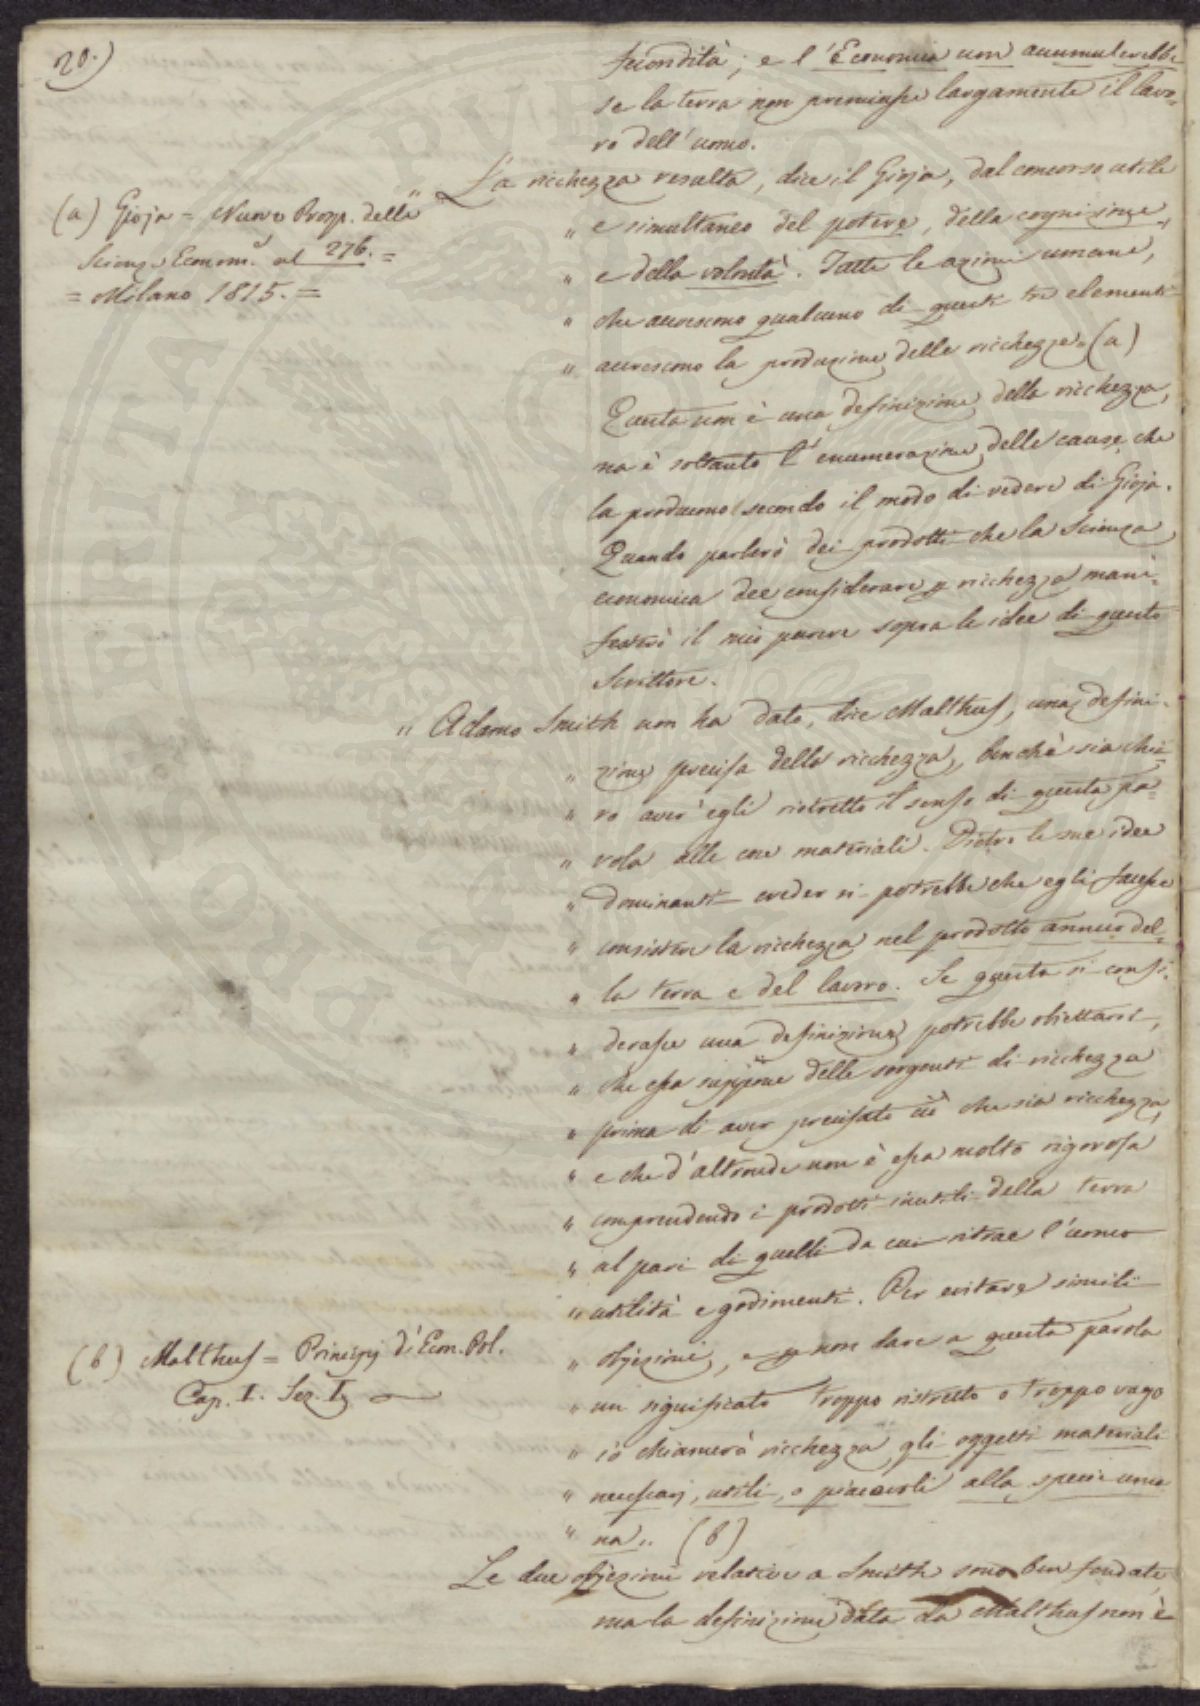 20.)
fecondità; e l'Economia non accumulerebbe
se la terra non premiasse largamente il lavo-
ro dell'uomo.
" La ricchezza resulta, dice il Gioja, dal concorso utile
" e simultaneo del potere, della cognizione,
" e della volontà. Tutte le azioni umane,
" che accrescono qualcuno di questi tre elementi
" accrescono la produzione delle ricchezze " (a)
(a) Gioja = Nuovo Prosp. delle
Scienze Econom. al 276. =
= Milano 1815. =
Questa non è una definizione della ricchezza,
ma è soltanto l'enumerazione delle cause che
la producono secondo il modo di vedere di Gioja.
Quando parlerò dei prodotti che la Scienza
economica dee considerare p. ricchezza mani-
festerò il mio parere sopra le idee di questo
Scrittore.
" Adamo Smith non ha dato, dice Malthus, una defini-
" zione precisa della ricchezza, benchè sia chia-
" ro aver egli ristretto il senso di questa pa-
" rola alle cose materiali. Dietro le sue idee
" dominanti creder si potrebbe che egli facesse
" consistere la ricchezza nel prodotto annuo del-
" la terra e del lavoro. Se questa si consi-
" derasse una definizione potrebbe obiettarsi,
" che essa suppone delle sorgenti di ricchezza
" prima di aver precisato ciò che sia ricchezza,
" e che d'altronde non è essa molto rigorosa
" comprendendo i prodotti inutili della terra
" al pari di quelli da cui ritrae l'uomo
" utilità e godimenti. Per evitare simili
" objezioni, e p. non dare a questa parola
" un significato troppo ristretto o troppo vago
" io chiamerò ricchezza gli oggetti materiali
" necessarj, utili, o piacevoli alla specie uma-
" na " (b)
(b) Malthus = Principj d'Econ. Pol.
Cap. I. Sez. I
Le due objezioni relative a Smith sono ben fondate,
ma la definizione data da Malthus non è